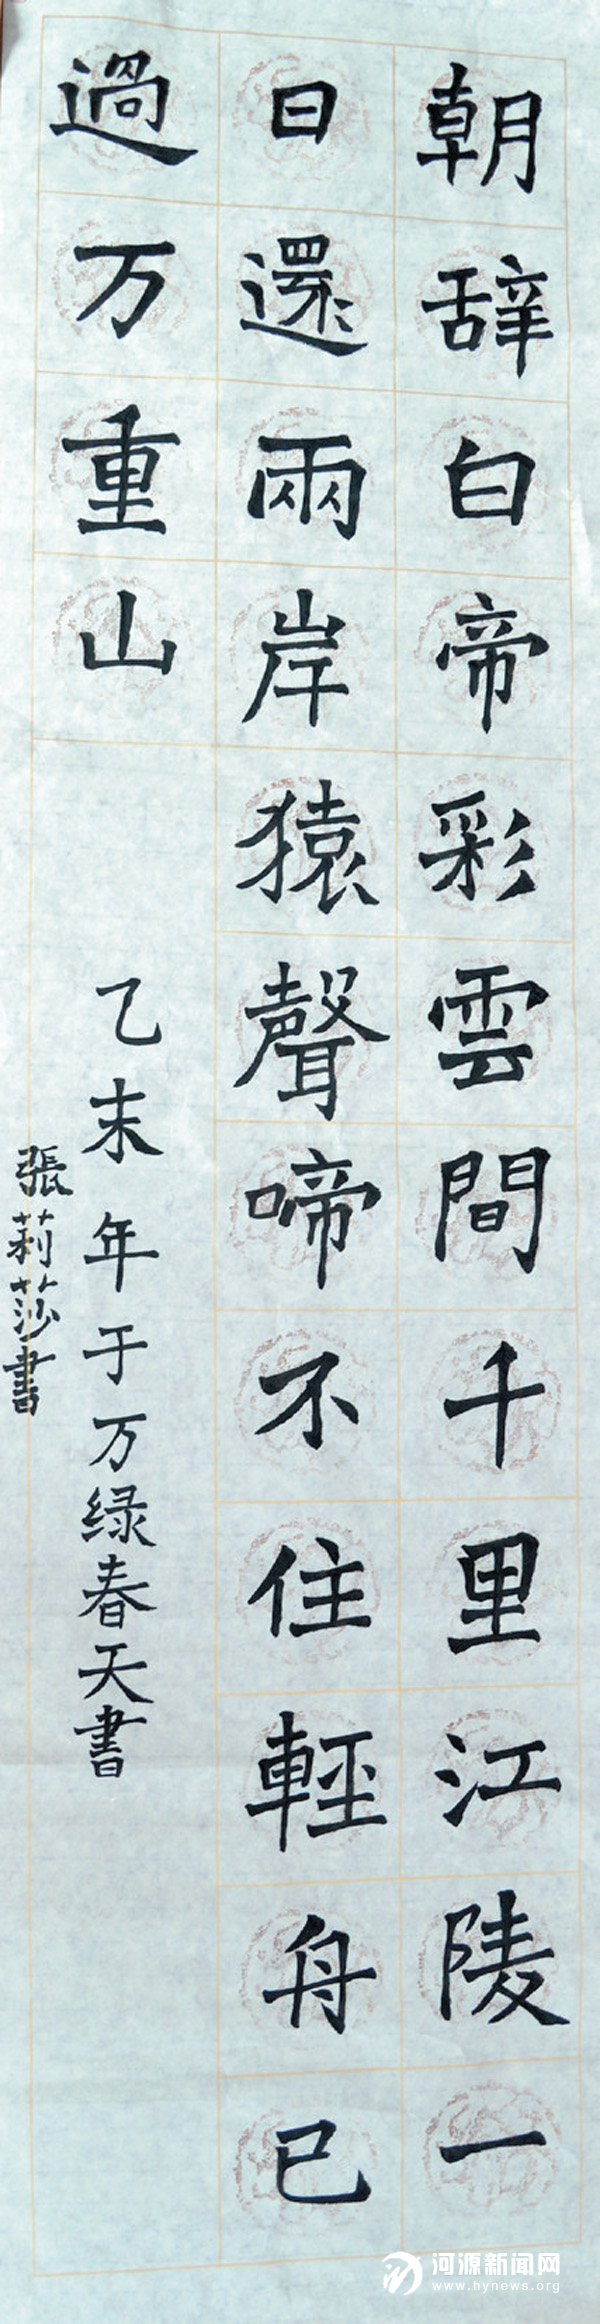 朝辞白帝彩雲間千里江陵一
日還兩岸猿聲啼不住輕舟已
過万重山
乙末年于万绿春天書
張莉莎書
河源新闻网
www.hynews.org